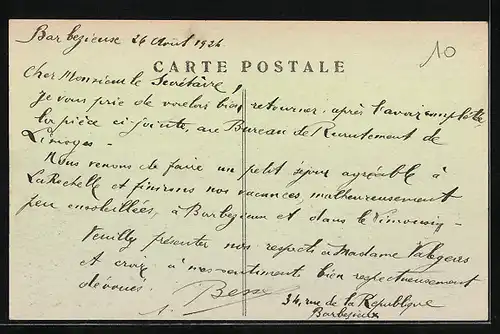 Barbezieux 26 Août 1924
10
CARTE POSTALE
Cher Monsieur le Secrétaire,
Je vous prie de vouloir bien retourner, après l'avoir complétée
la pièce ci-jointe, au Bureau de Recrutement de
Limoges -
Nous venons de faire un petit séjour agréable à
La Rochelle et finirons nos vacances, malheureusement
peu ensoleillées, à Barbezieux et dans le Limousin -
Veuillez présenter nos respects à Madame
et croire à mes sentiments bien respectueusement
dévoués.
34, rue de la République
Barbezieux